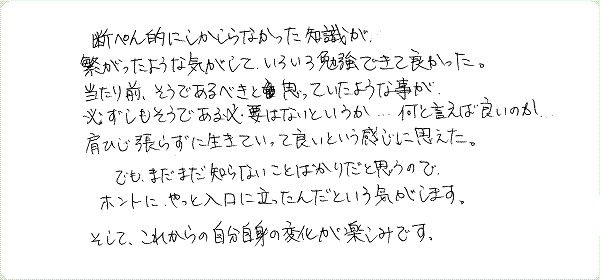 断ぺん的にしかしらなかった知識が、
繋がったような気がして、いろいろ勉強できて良かった。
当たり前、そうであるべきと思っていたような事が、
必ずしもそうである必要はないというか…何と言えば良いのか…
肩ひじ張らずに生きていって良いという感じに思えた。
でも、まだまだ知らないことばかりだと思うので、
ホントに、やっと入口に立ったんだという気がします。
そして、これからの自分自身の変化が楽しみです。